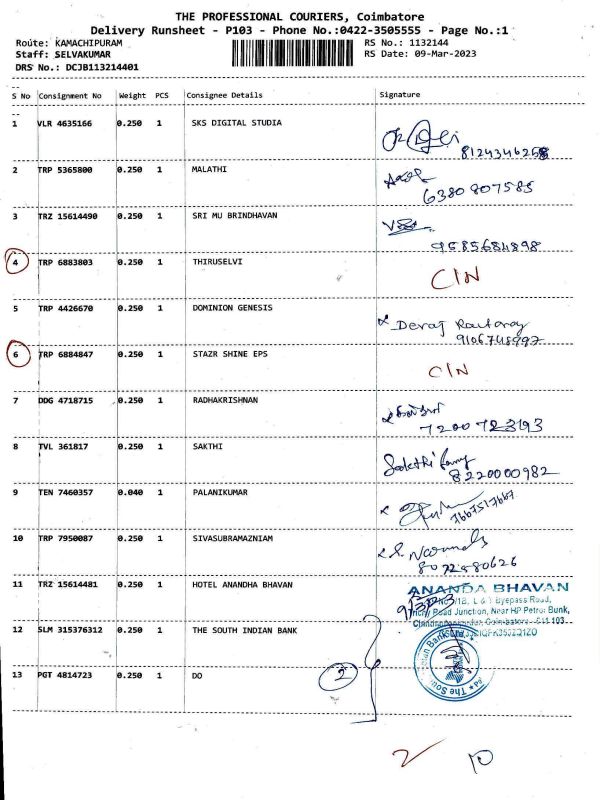 THE PROFESSIONAL COURIERS, Coimbatore
Delivery Runsheet - P103 - Phone No.:0422-3505555 - Page No.:1
Route: KAMACHIPURAM RS No.: 1132144
Staff: SELVAKUMAR RS Date: 09-Mar-2023
DRS No.: DCJB113214401
S No Consignment No Weight PCS Consignee Details Signature
1 VLR 4635166 0.250 1 SKS DIGITAL STUDIA
8124346258
2 TRP 5365800 0.250 1 MALATHI
6380807585
3 TRZ 15614490 0.250 1 SRI MU BRINDHAVAN
9585684898
4 TRP 6883803 0.250 1 THIRUSELVI
CIN
5 TRP 4426670 0.250 1 DOMINION GENESIS
Devraj
6 TRP 6884847 0.250 1 STAZR SHINE EPS
CIN
7 DDG 4718715 0.250 1 RADHAKRISHNAN
8 TVL 361817 0.250 1 SAKTHI
8220000982
9 TEN 7460357 0.040 1 PALANIKUMAR
7667517667
10 TRP 7950087 0.250 1 SIVASUBRAMAZNIAM
11 TRZ 15614481 0.250 1 HOTEL ANANDHA BHAVAN
ANANDA BHAVAN
Byepass Road,
Road Junction, Near HP Petrol Bunk,
12 SLM 315376312 0.250 1 THE SOUTH INDIAN BANK
13 PGT 4814723 0.250 1 DO
2
2 10